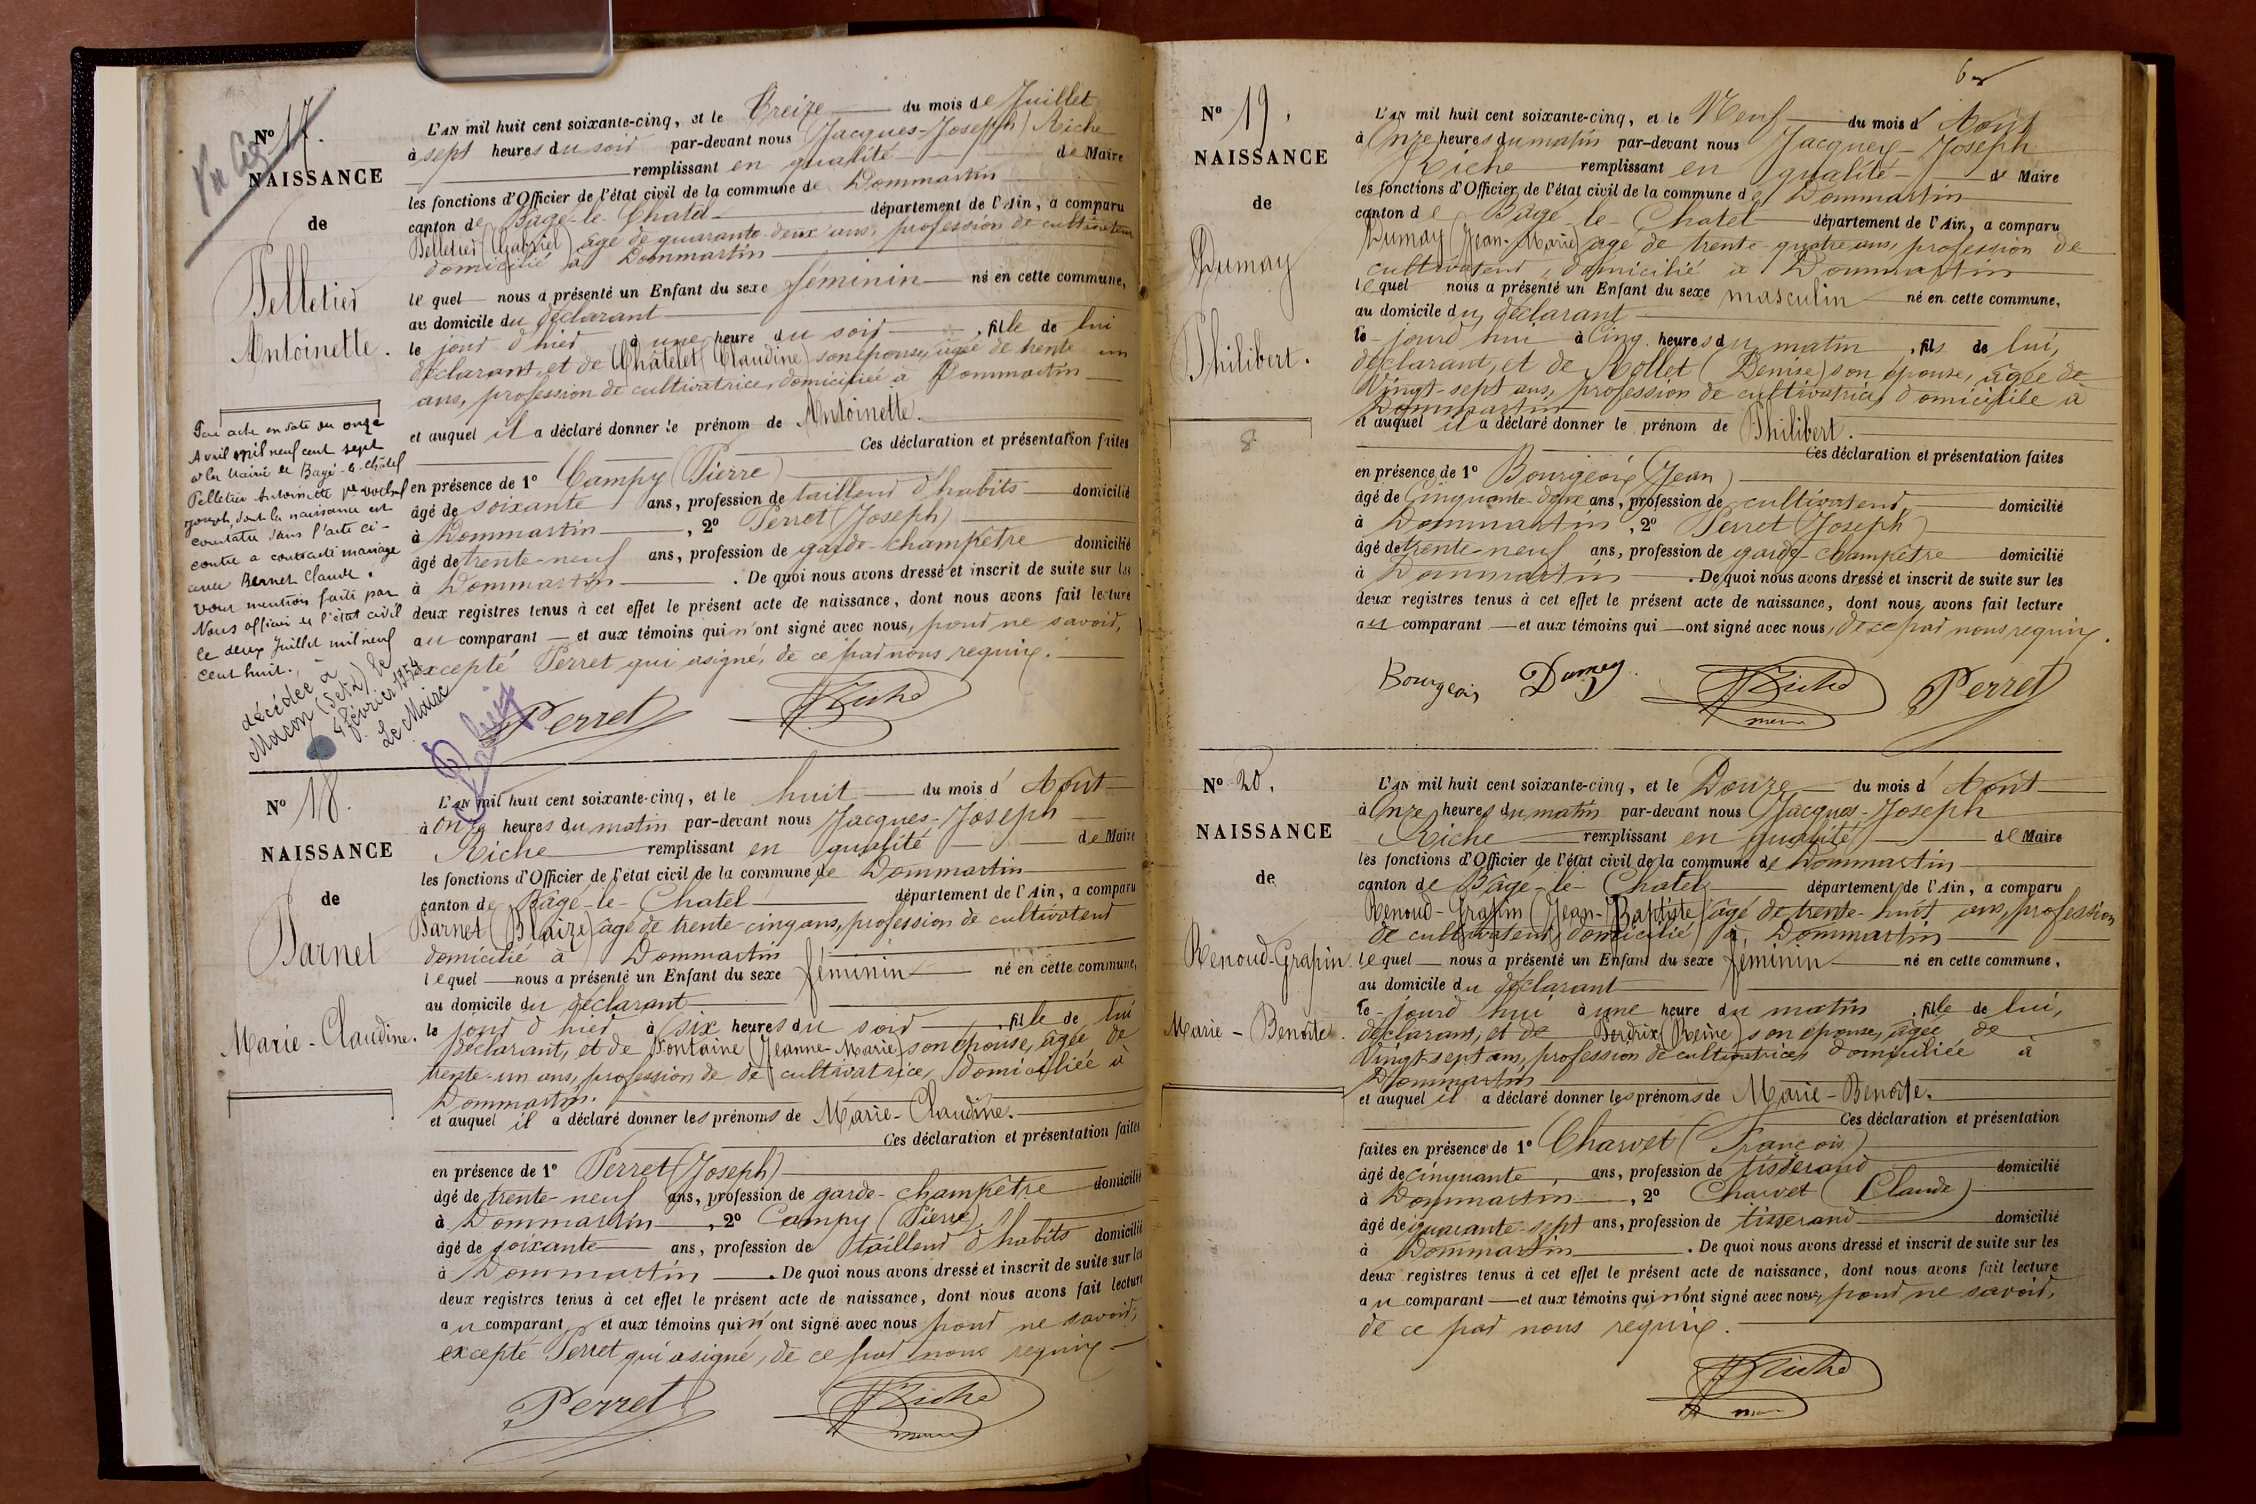 Nº 17.
NAISSANCE
de
Pelletier
Antoinette.
L'AN mil huit cent soixante-cinq, et le Treize du mois de Juillet
à sept heures du soir par-devant nous Jacques-Joseph Riche
remplissant en qualité de Maire
les fonctions d'Officier de l'état civil de la commune de Dommartin
canton de Bâgé-le-Chatel département de l'Ain, a comparu
Pelletier (Gabriel) âgé de quarante-deux ans, profession de cultivateur
domicilié à Dommartin
lequel nous a présenté un Enfant du sexe féminin né en cette commune,
au domicile du déclarant
le jour d'hier à une heure du soir, fille de lui
déclarant, et de Châtelet (Claudine) son épouse, âgée de trente un
ans, profession de cultivatrice, domiciliée à Dommartin
et auquel il a déclaré donner le prénom de Antoinette.
Ces déclaration et présentation faites
en présence de 1º Campy (Pierre)
âgé de soixante ans, profession de tailleur d'habits domicilié
à Dommartin, 2º Perret (Joseph)
âgé de trente-neuf ans, profession de garde-champêtre domicilié
à Dommartin. De quoi nous avons dressé et inscrit de suite sur les
deux registres tenus à cet effet le présent acte de naissance, dont nous avons fait lecture
au comparant et aux témoins qui n'ont signé avec nous, pour ne savoir,
excepté Perret qui a signé, de ce par nous requis.
Perret Riche
Par acte en date du onze
Avril mil neuf cent sept
à la Mairie de Bagé-le-Châtel
Pelletier Antoinette
dont la naissance est
constatée dans l'acte ci-
contre a contracté mariage
avec Bernet Claude.
Pour mention faite par
Nous officier de l'état civil
le deux Juillet mil neuf
cent huit.
décédée à
Macon (S et L) le
4 février 1954
Le Maire
Nº 18.
NAISSANCE
de
Parnet
Marie-Claudine.
L'AN mil huit cent soixante-cinq, et le huit du mois d'Août
à onze heures du matin par-devant nous Jacques-Joseph
Riche remplissant en qualité de Maire
les fonctions d'Officier de l'état civil de la commune de Dommartin
canton de Bâgé-le-Chatel département de l'Ain, a comparu
Parnet (Blaize) âgé de trente-cinq ans, profession de cultivateur
domicilié à Dommartin
lequel nous a présenté un Enfant du sexe féminin né en cette commune,
au domicile du déclarant
le jour d'hier à six heures du soir, fille de lui
déclarant, et de Fontaine (Jeanne-Marie) son épouse, âgée de
trente-un ans, profession de de cultivatrice, domiciliée à
Dommartin.
et auquel il a déclaré donner les prénoms de Marie-Claudine.
Ces déclaration et présentation faites
en présence de 1º Perret (Joseph)
âgé de trente-neuf ans, profession de garde-champêtre domicilié
à Dommartin, 2º Campy (Pierre)
âgé de soixante ans, profession de tailleur d'habits domicilié
à Dommartin. De quoi nous avons dressé et inscrit de suite sur les
deux registres tenus à cet effet le présent acte de naissance, dont nous avons fait lecture
au comparant et aux témoins qui n'ont signé avec nous pour ne savoir,
excepté Perret qui a signé, de ce par nous requis
Perret Riche
maire
Nº 19.
NAISSANCE
de
Dumay
Philibert.
8
L'AN mil huit cent soixante-cinq, et le Neuf du mois d'Août
à Onze heures du matin par-devant nous Jacques-Joseph
Riche remplissant en qualité de Maire
les fonctions d'Officier de l'état civil de la commune de Dommartin
canton de Bâgé-le-Chatel département de l'Ain, a comparu
Dumay (Jean-Marie) âgé de trente-quatre ans, profession de
cultivateur, domicilié à Dommartin
lequel nous a présenté un Enfant du sexe masculin né en cette commune,
au domicile du déclarant
le jourd'hui à Cinq heures du matin, fils de lui,
déclarant, et de Mollet (Denise) son épouse, âgée de
Vingt-sept ans, profession de cultivatrice, domiciliée à
Dommartin
et auquel il a déclaré donner le prénom de Philibert.
Ces déclaration et présentation faites
en présence de 1º Bourgeois (Jean)
âgé de Cinquante-deux ans, profession de cultivateur domicilié
à Dommartin, 2º Perret (Joseph)
âgé de trente-neuf ans, profession de garde-champêtre domicilié
à Dommartin. De quoi nous avons dressé et inscrit de suite sur les
deux registres tenus à cet effet le présent acte de naissance, dont nous avons fait lecture
au comparant et aux témoins qui ont signé avec nous, de ce par nous requis.
Bourgeois Dumay Riche Perret
maire
Nº 20.
NAISSANCE
de
Renoud-Grapin
Marie-Benoite.
L'AN mil huit cent soixante-cinq, et le Douze du mois d'Août
à Onze heures du matin par-devant nous Jacques-Joseph
Riche remplissant en qualité de Maire
les fonctions d'Officier de l'état civil de la commune de Dommartin
canton de Bâgé-le-Chatel département de l'Ain, a comparu
Renoud-Grapin (Jean-Baptiste) âgé de trente-huit ans, profession
de cultivateur, domicilié à Dommartin
lequel nous a présenté un Enfant du sexe féminin né en cette commune,
au domicile du déclarant
le jourd'hui à une heure du matin, fille de lui,
déclarant, et de Perdrix (Reine) son épouse, âgée de
Vingt-sept ans, profession de cultivatrice, domiciliée à
Dommartin
et auquel il a déclaré donner les prénoms de Marie-Benoite.
Ces déclaration et présentation
faites en présence de 1º Charvet (François)
âgé de cinquante ans, profession de tisserand domicilié
à Dommartin, 2º Charvet (Claude)
âgé de quarante-sept ans, profession de tisserand domicilié
à Dommartin. De quoi nous avons dressé et inscrit de suite sur les
deux registres tenus à cet effet le présent acte de naissance, dont nous avons fait lecture
au comparant et aux témoins qui n'ont signé avec nous, pour ne savoir,
de ce par nous requis.
Riche
maire